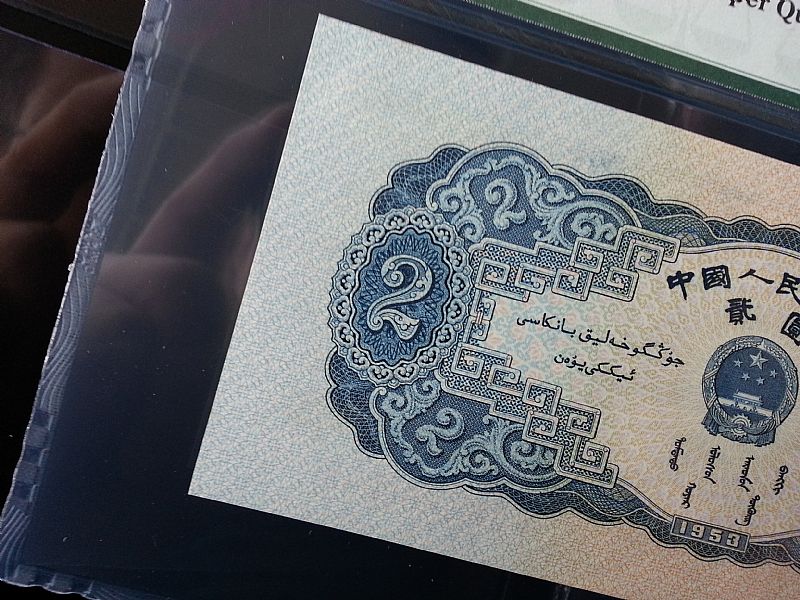 per Qu
2
2
中國人民
貳圓
جۇڭگوخەلىق بانكاسى
ئىككى يۈەن
2
1953